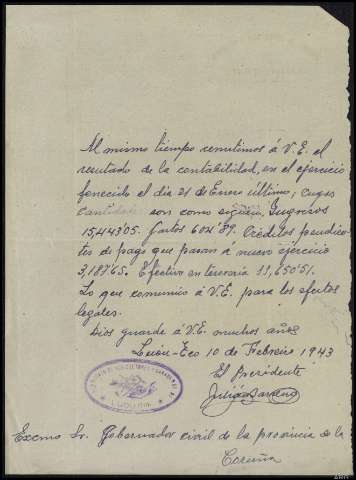 Al mismo tiempo remitimos á V.E. el
resultado de la contabilidad, en el ejercicio
fenecido el dia 31 de Enero último; cuyas
cantidades son como siguen, Ingresos
15,443'05. Gastos 602'89. Créditos pendien-
tes de pago que pasan á nuevo ejercicio
3,187'65. Efectivo en tesoreria 11,650'51.
Lo que comunico á V.E. para los efectos
legales.
Dios guarde á V.E. muchos años
10 de Febrero 1943
El Presidente
Julián
Excmo Sr. Gobernador civil de la provincia de la
Coruña